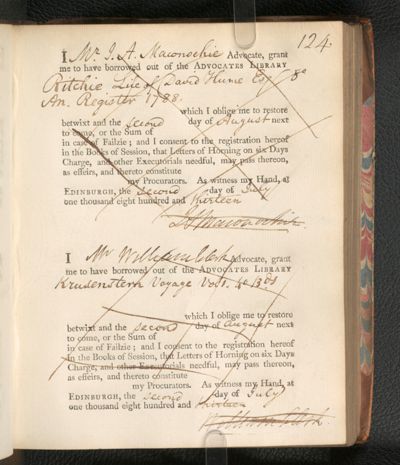 124
I, Mr. J. A. Maconochie Advocate, grant
me to have borrowed out of the ADVOCATES LIBRARY
Ritchie Life of David Hume Esq. 8o
An. Register 1788.
which I oblige me to restore
betwixt and the second day of August next
to come, or the Sum of
in case of Failzie; and I consent to the registration hereof
in the Books of Session, that Letters of Horning on six Days
Charge, and other Executorials needful, may pass thereon,
as effeirs, and thereto constitute
my Procurators. As witness my Hand, at
EDINBURGH, the second day of July
one thousand eight hundred and thirteen
J A Maconochie.
I Mr William Clerk Advocate, grant
me to have borrowed out of the ADVOCATES LIBRARY
Krusenstern Voyage Vol 1. 4o
which I oblige me to restore
betwixt and the second day of August next
to come, or the Sum of
in case of Failzie; and I consent to the registration hereof
in the Books of Session, that Letters of Horning on six Days
Charge, and other Executorials needful, may pass thereon,
as effeirs, and thereto constitute
my Procurators. As witness my Hand, at
EDINBURGH, the second day of July
one thousand eight hundred and thirteen
William Clerk